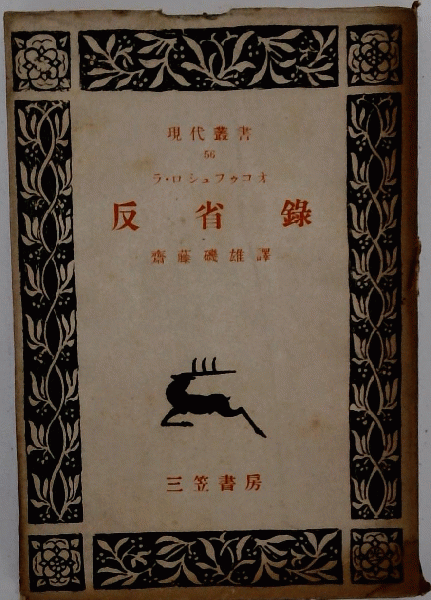 現代叢書
56
ラ・ロシュフゥコオ
反省錄
齋藤磯雄譯
三笠書房